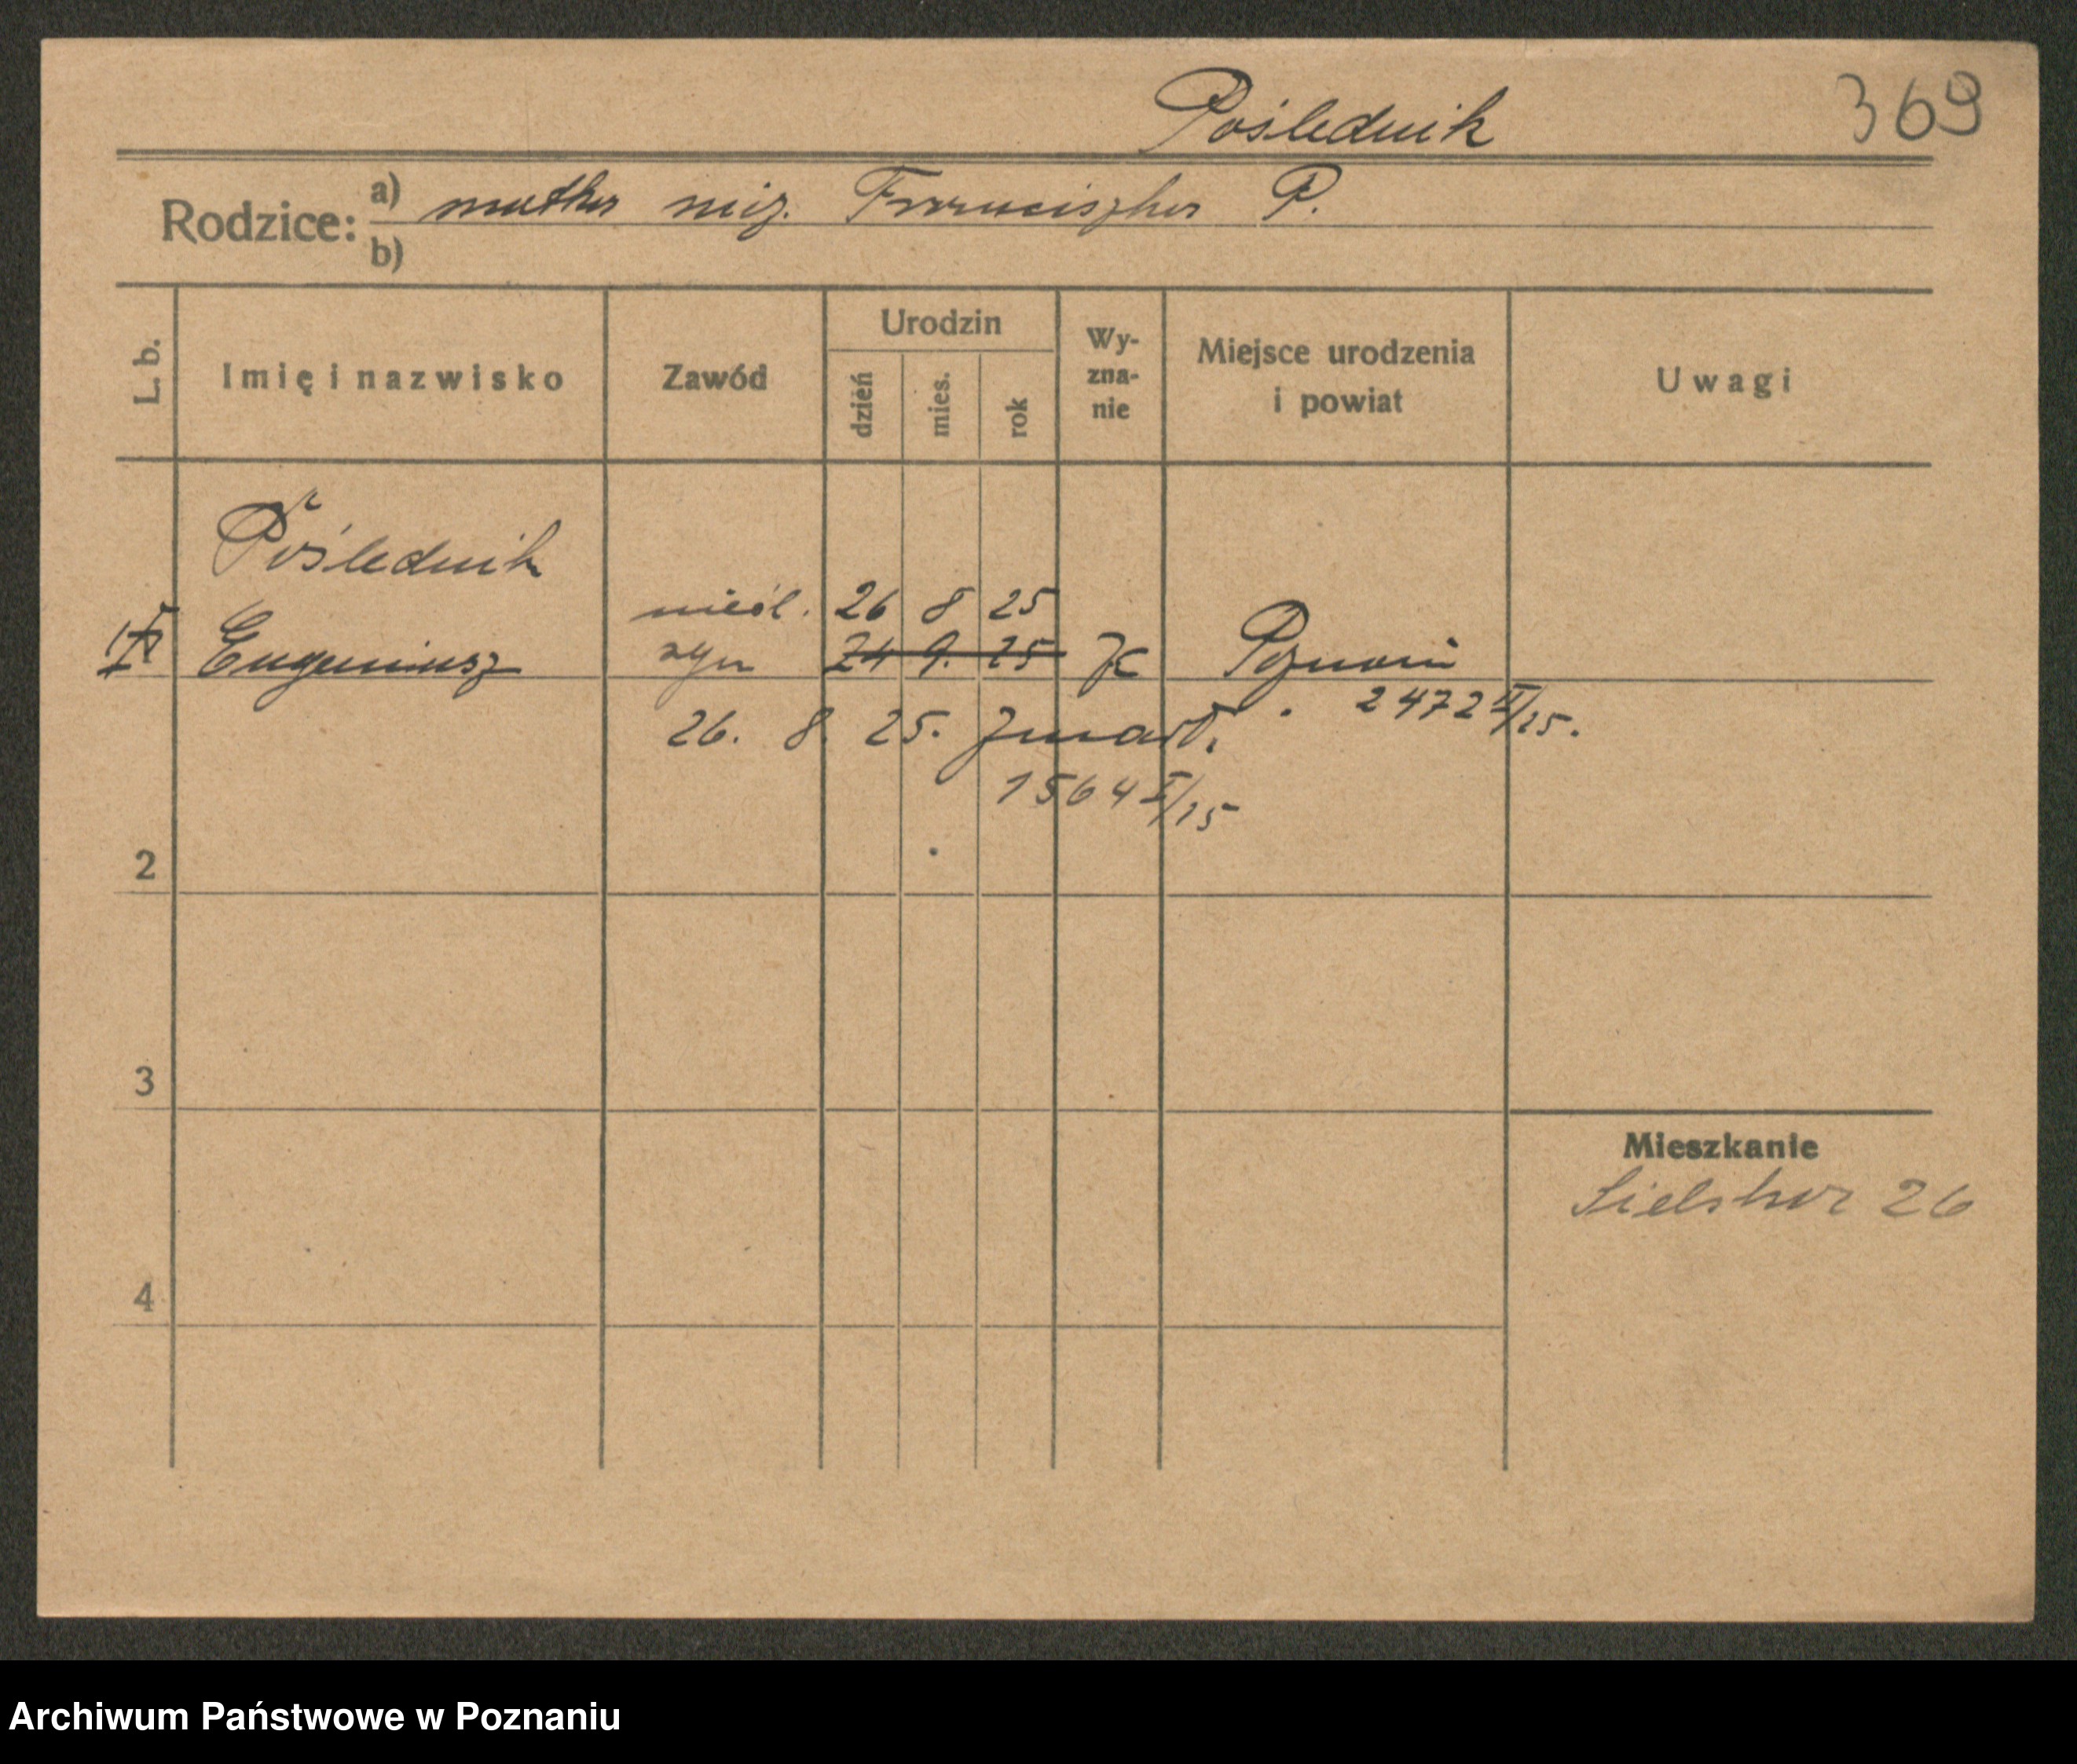 Poślednik 369
Rodzice: a) matka niez. Franciszka P.
b)
L. b.
Imię i nazwisko
Zawód
Urodzin
dzień
mies.
rok
Wy-
zna-
nie
Miejsce urodzenia
i powiat
Uwagi
Poślednik
nieśl. 26 8 25
Eugeniusz syn 24 9. 25 K Poznań
2472 II/25.
26. 8. 25. zmarł.
1564 I/25
2
3
4
Mieszkanie
Sielska 26
Archiwum Państwowe w Poznaniu